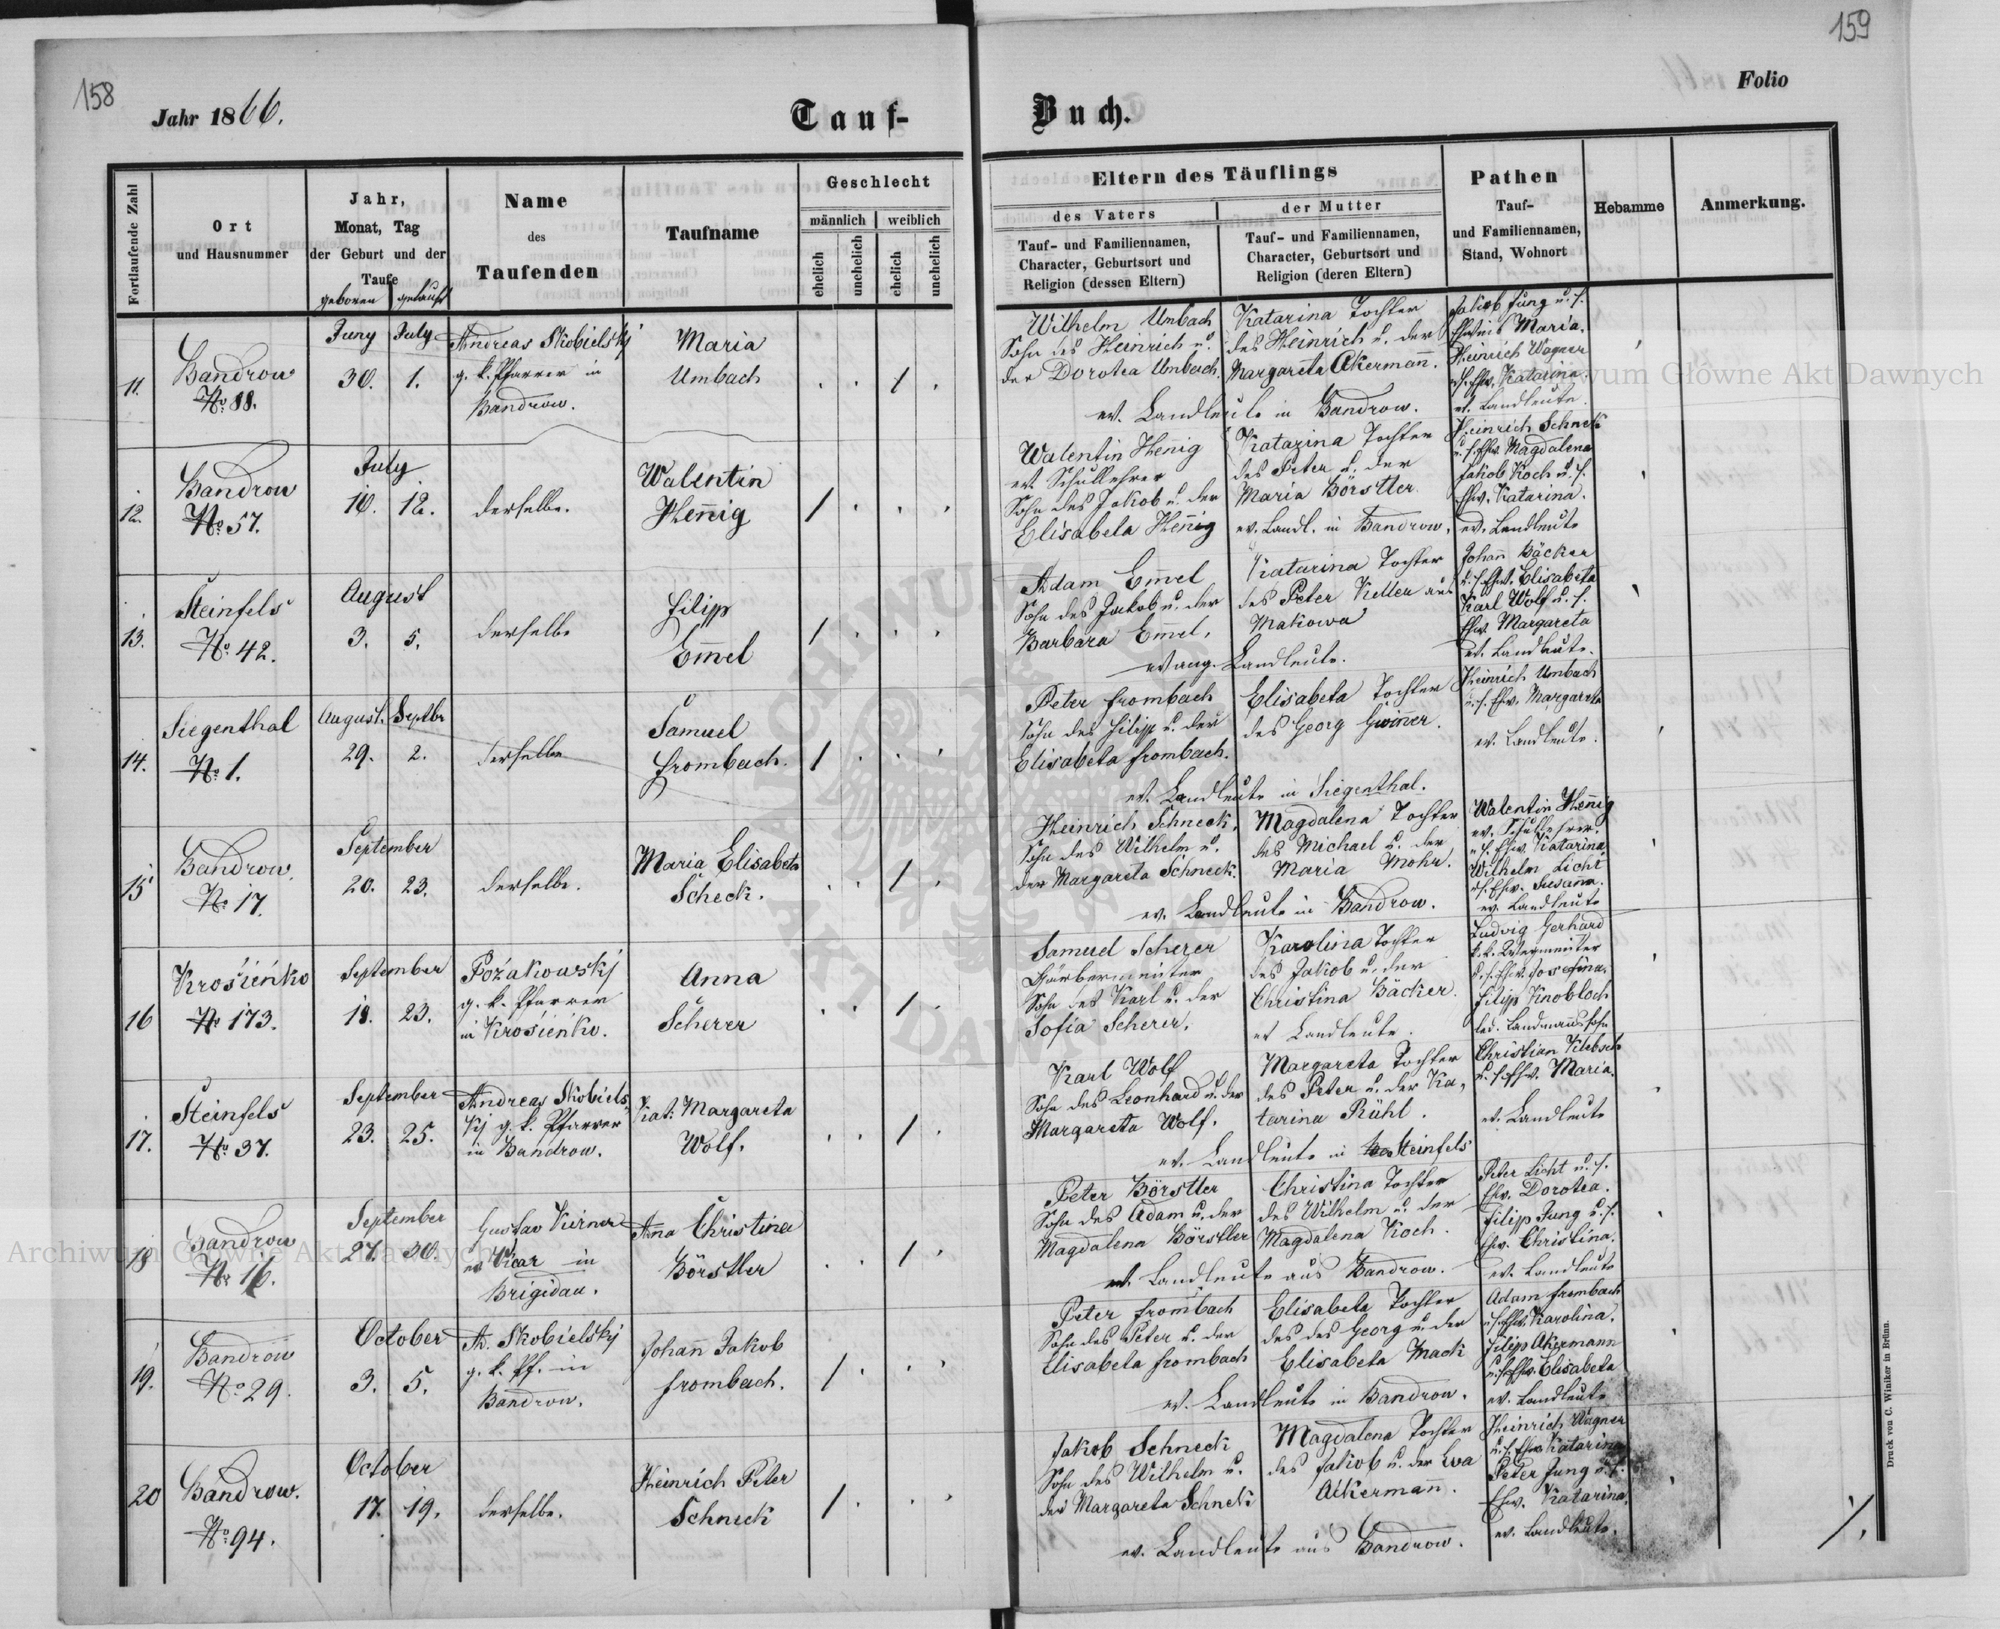 158
159
Jahr 1866.
Tauf-
Buch.
Folio
Fortlaufende Zahl
Ort
und Hausnummer
Jahr,
Monat, Tag
der Geburt und der
Taufe
geboren getauft
Name
des
Taufenden
Taufname
Geschlecht
männlich weiblich
ehelich unehelich ehelich unehelich
Eltern des Täuflings
des Vaters
Tauf- und Familiennamen,
Character, Geburtsort und
Religion (dessen Eltern)
der Mutter
Tauf- und Familiennamen,
Character, Geburtsort und
Religion (deren Eltern)
Pathen
Tauf-
und Familiennamen,
Stand, Wohnort
Hebamme
Anmerkung.
11.
Bandrow
No 88.
Juny July
30. 1.
Andreas Skobielskj
g. k. Pfarrer in
Bandrow.
Maria
Umbach
Wilhelm Umbach
Sohn des Heinrich u.
der Dorotea Umbach.
Katarina Tochter
des Heinrich u. der
Margareta Akermann̄.
ev. Landleute in Bandrow.
Jakob Jung u. s.
Ehweib Maria.
Heinrich Wagner
u. s. Ehw. Katarina.
ev. Landleute.
12.
Bandrow
No 57.
July
10. 12.
derselbe.
Walentin
Hen̄ig
Walentin Henig
ev. Schullehrer
Sohn des Jakob u. der
Elisabeta Hen̄ig
Katarina Tochter
des Peter u. der
Maria Börstler.
ev. Landl. in Bandrow.
Heinrich Schneck
u. s. Ehw. Magdalena
Jakob Koch u. s.
Ehw. Katarina.
ev. Landleute
13.
Steinfels
No 42.
August
3. 5.
derselbe
Filipp
Em̄el
Adam Em̄el
Sohn des Jakob u. der
Barbara Em̄el.
Katarina Tochter
des Peter Keller aus
Makowa
evang. Landleute.
Johan̄ Bäcker
u. s. Ehw. Elisabeta
Karl Wolf u. s.
Ehw. Margareta
ev. Landleute.
14.
Siegenthal
No 1.
August. Septbr
29. 2.
derselbe
Samuel
Frombach.
Peter Frombach
Sohn des Filipp u. der
Elisabeta Frombach.
Elisabeta Tochter
des Georg Gwin̄er.
ev. Landleute in Siegenthal.
Heinrich Umbach
u. s. Ehw. Margareta
ev. Landleute.
15
Bandrow.
No 17.
September
20. 23.
derselbe.
Maria Elisabeta
Scheck.
Heinrich Schneck.
Sohn des Wilhelm u.
der Margareta Schneck.
Magdalena Tochter
des Michael u. der
Maria Mohr.
ev. Landleute in Bandrow.
Walentin Hen̄ig
ev. Schullehrer.
u. s. Ehw. Katarina
Wilhelm Licht
u. s. Ehw. Susan̄a.
ev. Landleute
16
Krościeńko
No 173.
September
18. 23.
Pożakowskj
g. k. Pfarrer
in Krościeńko.
Anna
Scherer
Samuel Scherer
Färbermeister
Sohn des Karl u. der
Sofia Scherer.
Karolina Tochter
des Jakob u. der
Christina Bäcker.
ev Landleute.
Ludwig Gerhard
u. s. Ehw. Josefina.
Filipp Knobloch
led. Landmannssohn
17.
Steinfels
No 37.
September
23. 25.
Andreas Skobiels
kj g. k. Pfarrer
in Bandrow.
Kat. Margareta
Wolf.
Karl Wolf
Sohn des Leonhard u. der
Margareta Wolf.
Margareta Tochter
des Peter u. der Ka,
tarina Rühl.
ev. Landleute in Steinfels
Christian Klebsch
u. s. Ehw. Maria.
ev. Landleute
18
Bandrow
No 16.
September
27. 30.
Gustav
ev Vicar in
Brigidau.
An̄a Christina
Börstler
Peter Börstler
Sohn des Adam u. der
Magdalena Börstler
Christina Tochter
des Wilhelm u. der
Magdalena Koch.
ev. Landleute aus Bandrow.
Peter Licht u. s.
Ehw. Dorotea.
Filipp Jung u. s.
Ehw. Christina.
ev. Landleute
19.
Bandrow
No 29.
October
3. 5.
A. Skobielskj
g. k. Pf. in
Bandrow.
Johan̄ Jakob
Frombach.
Peter Frombach
Sohn des Peter u. der
Elisabeta Frombach
Elisabeta Tochter
des des Georg u. der
Elisabeta Mack
ev. Landleute in Bandrow.
Adam Frombach
u. s. Ehw. Karolina.
Filipp Akermann
u. s. Ehw. Elisabeta
ev. Landleute
20
Bandrow.
No 94.
October
17. 19.
derselbe.
Heinrich Peter
Schneck
Jakob Schneck
Sohn des Wilhelm u.
der Margareta Schneck
Magdalena Tochter
des Jakob u. der Eva
Akkerman̄.
ev. Landleute aus Bandrow.
Heinrich Wagner
u. s. Ehw. Katarina
Peter Jung u. s.
Ehw. Katarina.
ev. Landleute.
Druck von C. Winiker in Brünn.
Archiwum Główne Akt Dawnych
Archiwum Główne Akt Dawnych